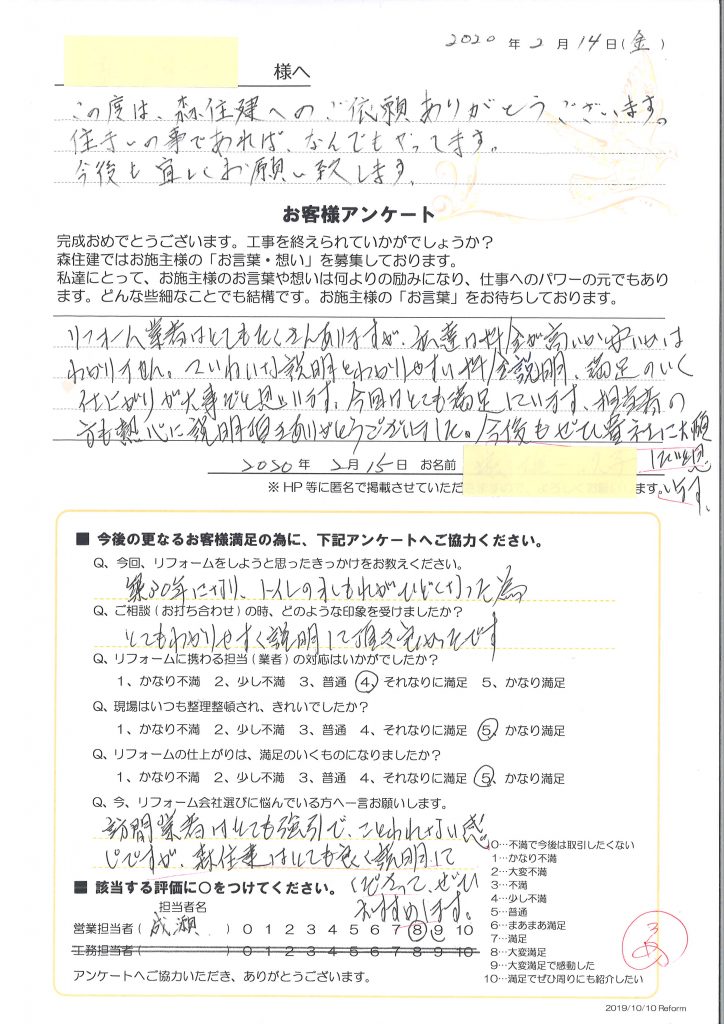 2020年2月14日(金)
様へ
この度は、森住建へのご依頼ありがとうございます。
住まいの事であれば、なんでもやってます。
今後も宜しくお願い致します。
お客様アンケート
完成おめでとうございます。工事を終えられていかがでしょうか?
森住建ではお施主様の「お言葉・想い」を募集しております。
私達にとって、お施主様のお言葉や想いは何よりの励みになり、仕事へのパワーの元でもあり
ます。どんな些細なことでも結構です。お施主様の「お言葉」をお待ちしております。
リフォーム業者はとてもたくさんありますが、私達は料金が高いか安いかは
わかりません。ていねいな説明とわかりやすい料金説明、満足のいく
仕上がりが大事だと思います。今回はとても満足しています。担当者の
方も熱心に説明頂きありがとうございました。今後もぜひ貴社にお願
いしたいと思
います。
2020年2月15日 お名前
※HP等に匿名で掲載させていただ
ます。
■ 今後の更なるお客様満足の為に、下記アンケートへご協力ください。
Q、今回、リフォームをしようと思ったきっかけをお教えください。
築30年になり、トイレの水もれがひどくなった為
Q、ご相談(お打ち合わせ)の時、どのような印象を受けましたか?
とてもわかりやすく説明して頂き良かったです
Q、リフォームに携わる担当(業者)の対応はいかがでしたか?
1、かなり不満 2、少し不満 3、普通 4、それなりに満足 5、かなり満足
Q、現場はいつも整理整頓され、きれいでしたか?
1、かなり不満 2、少し不満 3、普通 4、それなりに満足 5、かなり満足
Q、リフォームの仕上がりは、満足のいくものになりましたか?
1、かなり不満 2、少し不満 3、普通 4、それなりに満足 5、かなり満足
Q、今、リフォーム会社選びに悩んでいる方へ一言お願いします。
訪問業者はとても強引で、ことわれない感
じですが、森住建はとても良く説明して
くださって、ぜひ
おすすめします。
■ 該当する評価に○をつけてください。
担当者名
営業担当者(成瀬) 0 1 2 3 4 5 6 7 8 9 10
工務担当者( ) 0 1 2 3 4 5 6 7 8 9 10
アンケートへご協力いただき、ありがとうございます。
0…不満で今後は取引したくない
1…かなり不満
2…大変不満
3…不満
4…少し不満
5…普通
6…まあまあ満足
7…満足
8…大変満足
9…大変満足で感動した
10…満足でぜひ周りにも紹介したい
2019/10/10 Reform